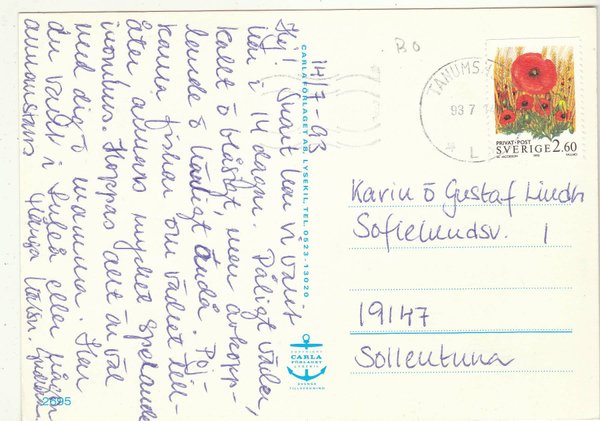 14/7-93
Hej! Snart har vi varit
här i 14 dagar. Dåligt väder,
kallt o blåsigt, men avkopp-
lande o härligt ändå. Poj-
karna fiskar om vädret till-
åter, annars mycket spelande
inomhus. Hoppas allt är väl
med dig o mamma. Har
du varit i eller någon
annanstans Många hälsn.
CARLA FÖRLAGET AB, LYSEKIL TEL 0523-13020
COPYRIGHT
CARLA
FÖRLAGET
LYSEKIL
SVENSK
TILLVERKNING
2595
BO
TANUMS
93 7 1
L
PRIVAT·POST
SVERIGE 2.60
Karin o Gustaf Lindh
Sofielundsv. 1
19147
Sollentuna